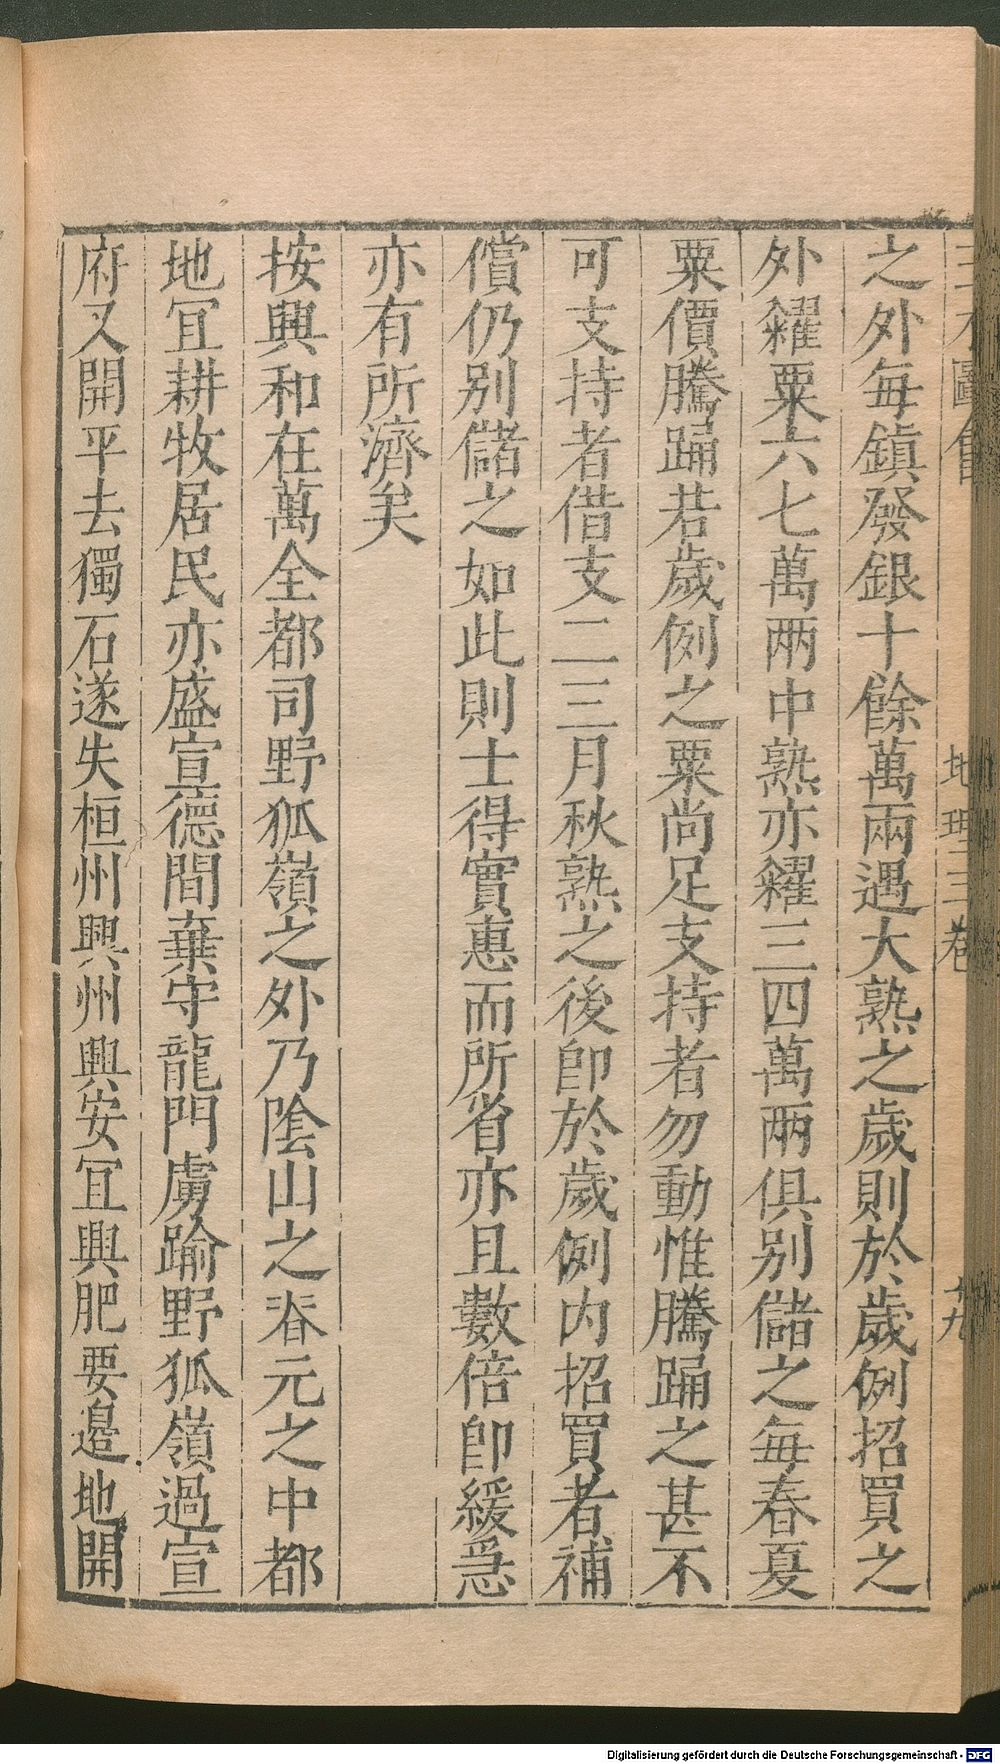 三才圖會 地理三卷 十九
之外每鎮發銀十餘萬兩遇大熟之歲則於歲例招買之
外糴粟六七萬兩中熟亦糴三四萬兩俱别儲之每春夏
粟價騰踊若歲例之粟尚足支持者勿動惟騰踊之甚不
可支持者借支二三月秋熟之後卽於歲例内招買者補
償仍别儲之如此則士得實惠而所省亦且數倍卽緩急
亦有所濟矣
按興和在萬全都司野狐嶺之外乃陰山之脊元之中都
地冝耕牧居民亦盛宣德間棄守龍門虜踰野狐嶺過宣
府又開平去獨石遂失桓州興州興安冝興肥要邉地開
Digitalisierung gefördert durch die Deutsche Forschungsgemeinschaft - DFG